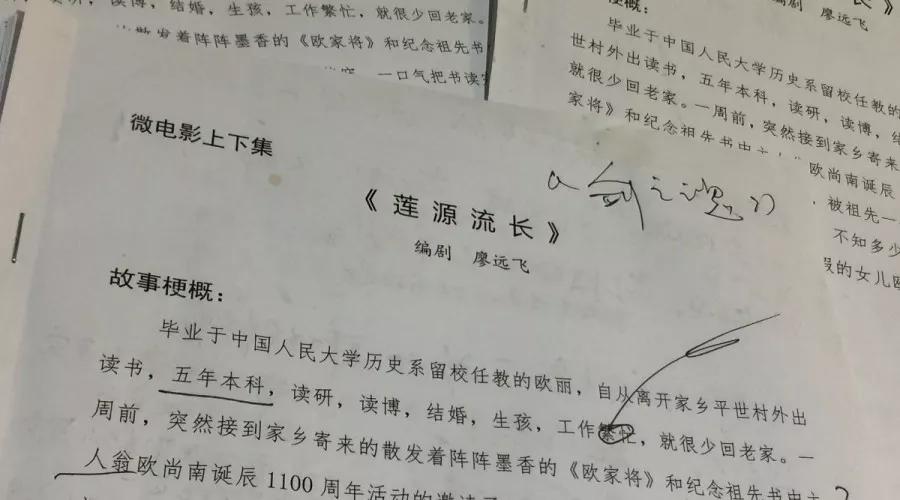 读博，结婚，生孩，工作繁忙，就很少回老家。
散发着阵阵墨香的《欧家将》和纪念祖先书
一口气把书读完
梗概：
编剧 廖远飞
毕业于中国人民大学历史系留校任教的
世村外出读书，五年本科，读研，读博，结
就很少回老家。一周前，突然接到家乡寄来
家将》和纪念祖先书中主人
欧尚南诞辰
被祖先一
不知多少
的女儿欧
微电影上下集
《莲源流长》
编剧 廖远飞
故事梗概：
毕业于中国人民大学历史系留校任教的欧丽，自从离开家乡平世村外出
读书，五年本科，读研，读博，结婚，生孩，工作繁忙，就很少回老家。一
周前，突然接到家乡寄来的散发着阵阵墨香的《欧家将》和纪念祖先书中主
人翁欧尚南诞辰1100周年活动的邀请函